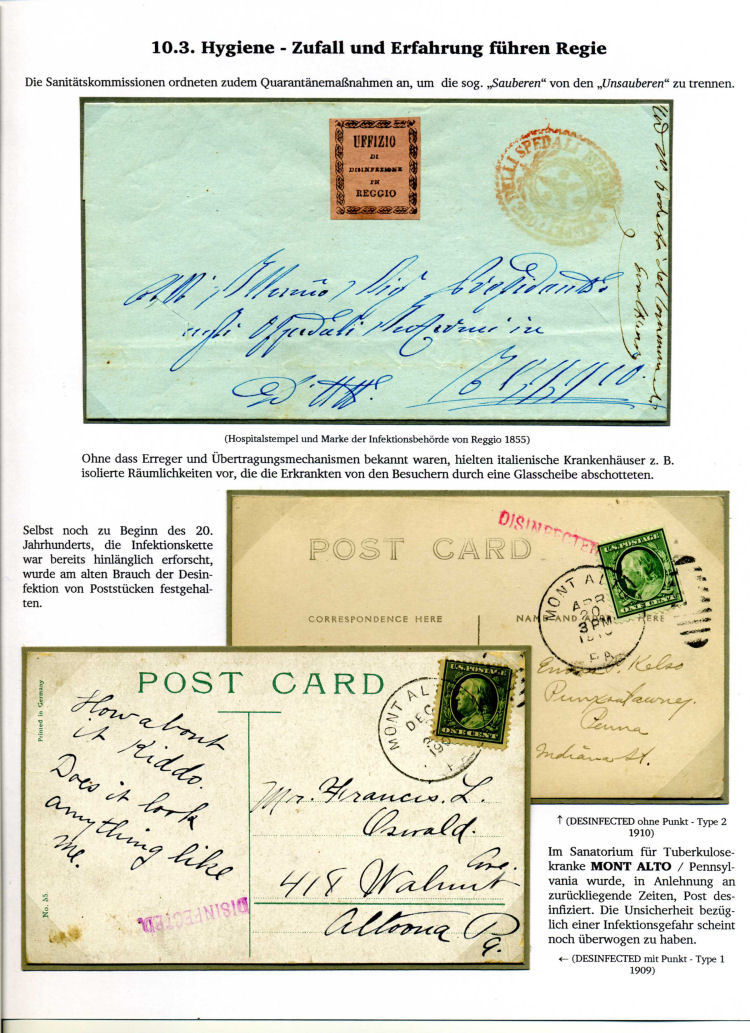 10.3. Hygiene - Zufall und Erfahrung führen Regie
Die Sanitätskommissionen ordneten zudem Quarantänemaßnahmen an, um die sog. „Sauberen“ von den „Unsauberen“ zu trennen.
UFFIZIO
DI
DISINFEZIONE
IN
REGGIO
SPEDALI
(Hospitalstempel und Marke der Infektionsbehörde von Reggio 1855)
Ohne dass Erreger und Übertragungsmechanismen bekannt waren, hielten italienische Krankenhäuser z. B.
isolierte Räumlichkeiten vor, die die Erkrankten von den Besuchern durch eine Glasscheibe abschotteten.
Selbst noch zu Beginn des 20.
Jahrhunderts, die Infektionskette
war bereits hinlänglich erforscht,
wurde am alten Brauch der Desin-
fektion von Poststücken festgehal-
ten.
DISINFECTED
POST CARD
U.S. POSTAGE
ONE CENT
MONT AL
APR
20
3 PM
1910
PA.
CORRESPONDENCE HERE
NAME AND
HERE
Kelso
Punxsutawney.
Penna
Indiana St.
POST CARD
U.S. POSTAGE
ONE CENT
MONT ALT
DEC
Printed in Germany
How about
it Kiddo.
Does it look
anything like
me.
Mr. Francis. L.
Oswald.
418 Walnut Ave.
Altoona Pa.
No. 55
DISINFECTED.
↑ (DESINFECTED ohne Punkt - Type 2
1910)
Im Sanatorium für Tuberkulose-
kranke MONT ALTO / Pennsyl-
vania wurde, in Anlehnung an
zurückliegende Zeiten, Post des-
infiziert. Die Unsicherheit bezüg-
lich einer Infektionsgefahr scheint
noch überwogen zu haben.
← (DESINFECTED mit Punkt - Type 1
1909)